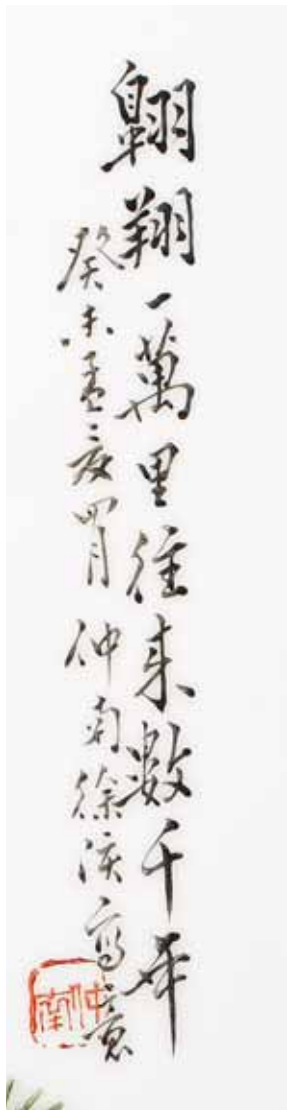 翶翔一萬里往来數千年
癸未孟夏四月仲南徐陔寫意
仲南